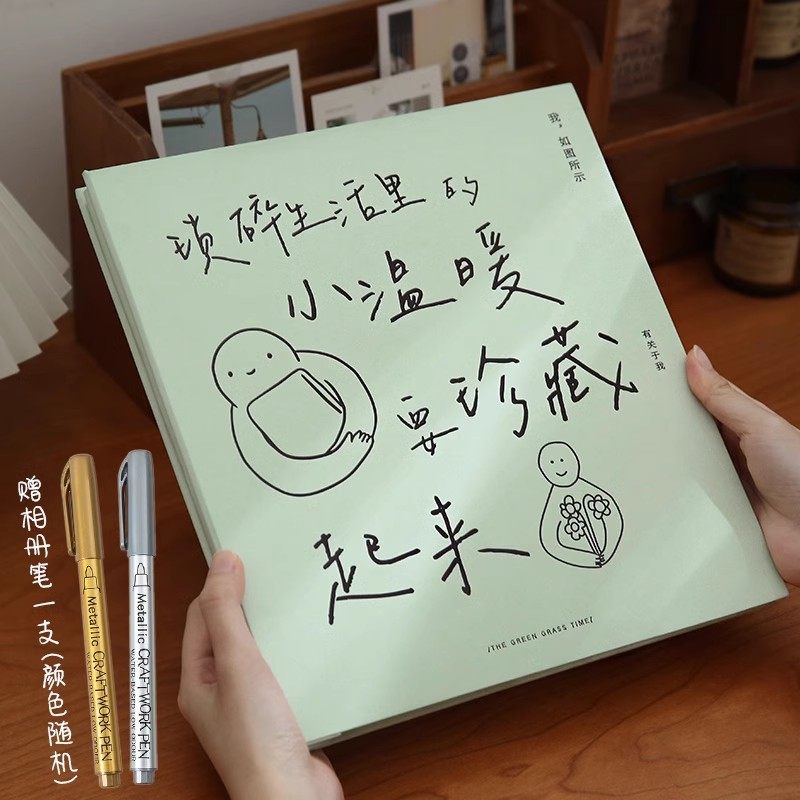 我，如图所示
琐碎生活里的
小温暖
有关于我
要珍藏
起来
/THE GREEN GRASS TIME/
赠相册笔一支(颜色随机)
Metallic CRAFTWORK PEN
WATER-BASED LOW ODOUR
Metallic CRAFTWORK PEN
WATER-BASED LOW ODOUR